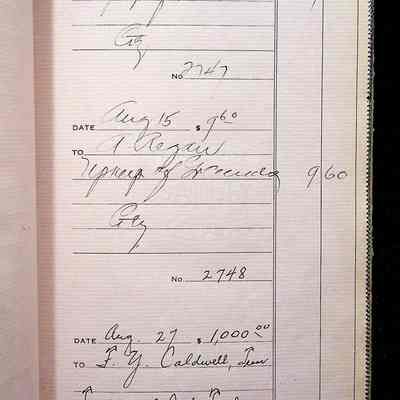 City
No 2747
DATE Aug 15 $ 9 60
TO A Regan
Upkeep of Grounds 9 60
City
No 2748
DATE Aug. 27 $ 1,000 00
TO F. Y. Caldwell, Treas